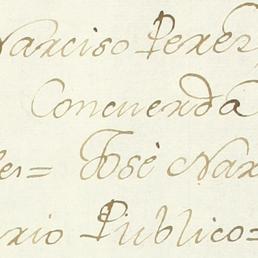 Narciso Perez
Concuerda
les= José Nar
rio Publico=